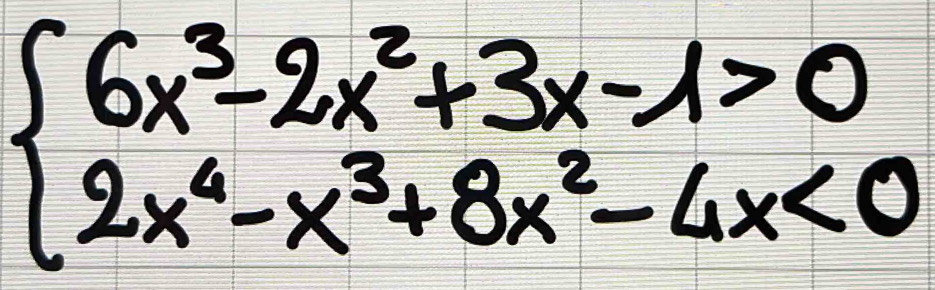 6x³-2x²+3x-1>0
2x⁴-x³+8x²-4x<0